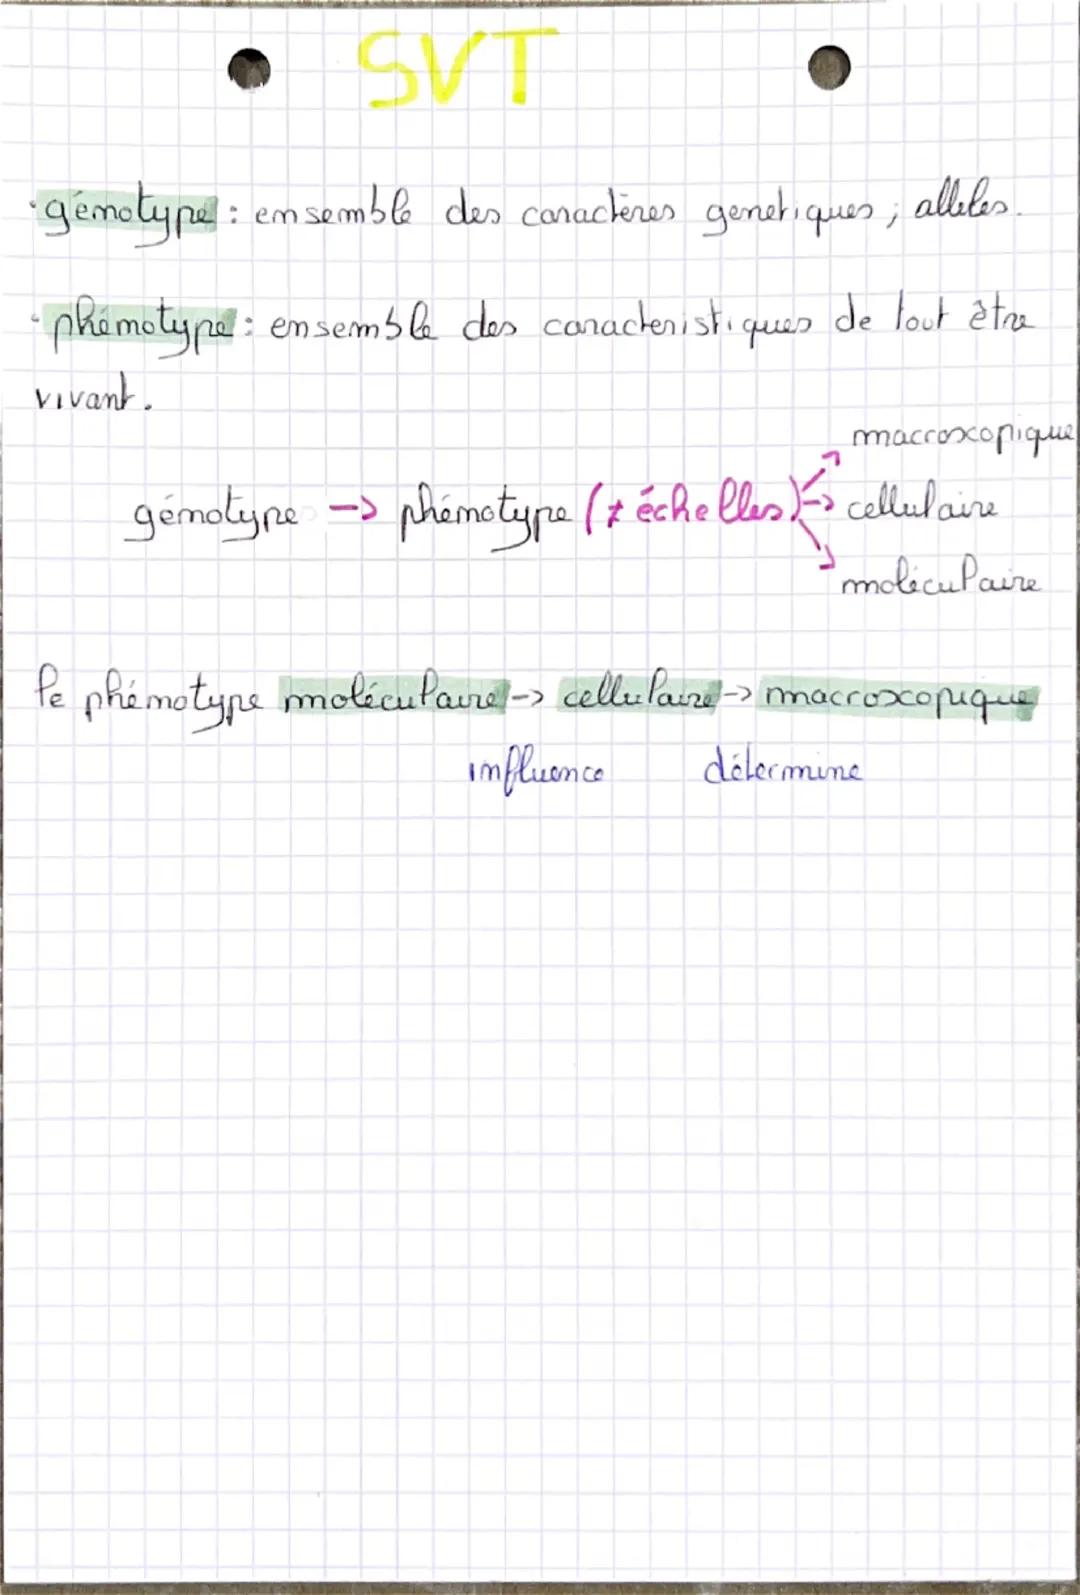 SVT
génotype : ensemble des caractères genetiques ; alleles.
phénotype : ensemble des caracteristiques de tout être
vivant.
macroscopique
génotype -> phénotype (≠ échelles) -> cellulaire
moléculaire
le phénotype moléculaire -> cellulaire -> macroscopique
influence détermine